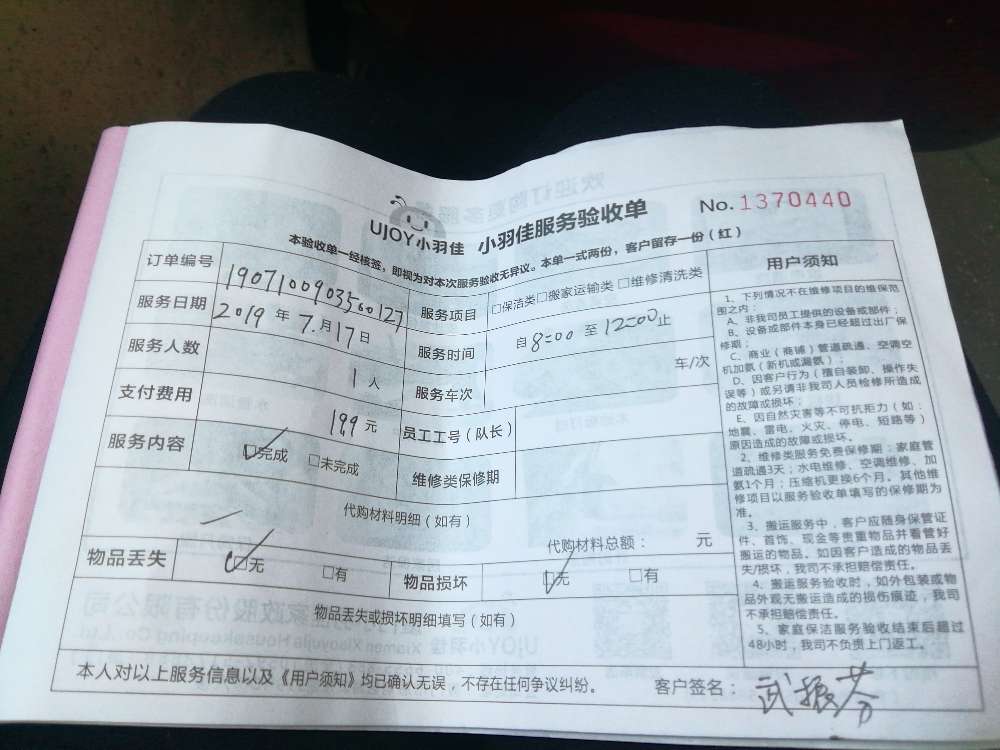 UJOY小羽佳 小羽佳服务验收单 No.1370440
本验收单一经核签，即视为对本次服务验收无异议。本单一式两份，客户留存一份（红）
订单编号 190710090356 0127 服务项目 □保洁类□搬家运输类□维修清洗类
服务日期 2019年7月17日 服务时间 自8:00至12:00止
服务人数 1人 服务车次 车/次
支付费用 199元 员工工号（队长）
服务内容 ☑完成 □未完成 维修类保修期
代购材料明细（如有）
代购材料总额： 元
物品丢失 ☑无 □有 物品损坏 ☑无 □有
物品丢失或损坏明细填写（如有）
用户须知
1、下列情况不在维修项目的维保范
围之内：
A、非我司员工提供的设备或部件；
B、设备或部件本身已经超过出厂保
修期；
C、商业（商铺）管道疏通、空调空
机加氨（新机或漏氨）；
D、因客户行为（擅自装卸、操作失
误等）或另请非我司人员检修所造成
的故障或损坏；
E、因自然灾害等不可抗拒力（如：
地震、雷电、火灾、停电、短路等）
原因造成的故障或损坏。
2、维修类服务免费保修期：家庭管
道疏通3天；水电维修、空调维修、加
氨1个月；压缩机更换6个月。其他维
修项目以服务验收单填写的保修期为
准。
3、搬运服务中，客户应随身保管证
件、首饰、现金等贵重物品并看管好
搬运的物品。如因客户造成的物品丢
失/损坏，我司不承担赔偿责任。
4、搬运服务验收时，如外包装或物
品外观无搬运造成的损伤痕迹，我司
不承担赔偿责任。
5、家庭保洁服务验收结束后超过
48小时，我司不负责上门返工。
本人对以上服务信息以及《用户须知》均已确认无误，不存在任何争议纠纷。 客户签名：武振芬